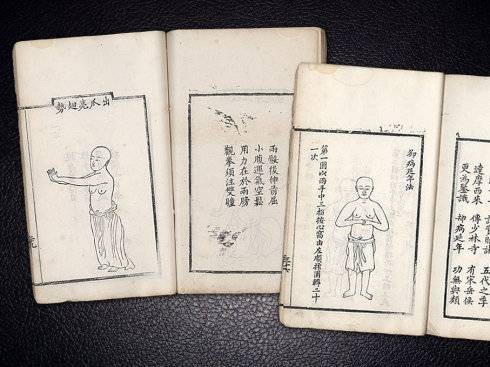 出爪亮翅勢
兩骽後伸前屈
小腹運氣空鬆
用力在於兩膀
觀拳須注雙瞳
却病延年法
第一圖以兩手中三指按心窩由左順揉圓轉二十
一次
五代之季
達摩西來 傳少林寺 有宋岳侯
更為鑒識 却病延年 功無與類